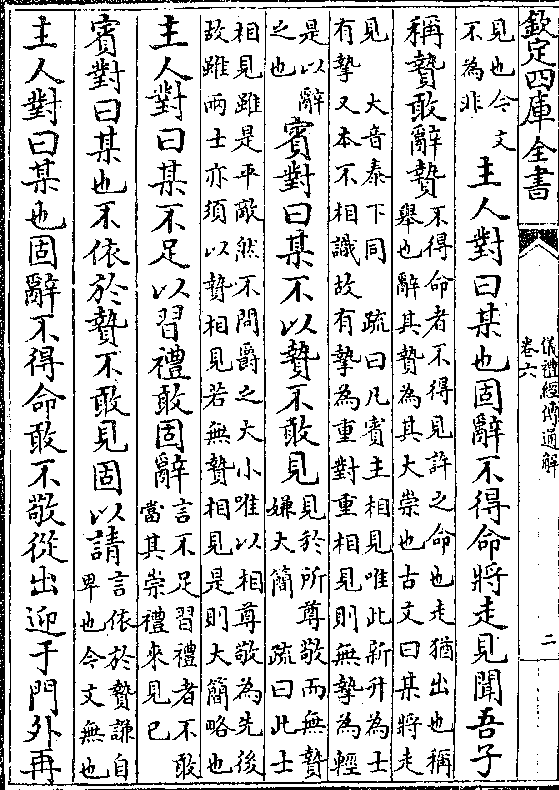 欽定四庫全書
儀禮經傳通解
卷六
二
見也今文
不為非
主人對曰某也固辭不得命將走見聞吾子
稱贄敢辭贄
不得命者不得見許之命也走猶出也稱
舉也辭其贄為其大崇也古文曰某將走
見　大音泰下同　疏曰凡賓主相見唯此新升為士
有摯又本不相識故有摯為重對重相見則無摯為輕
是以辭
之也
賓對曰某不以贄不敢見
見於所尊敬而無贄
嫌大簡　疏曰此士
相見雖是平敵然不問爵之大小唯以相尊敬為先後
故雖兩士亦須以贄相見若無贄相見是則大簡略也
主人對曰某不足以習禮敢固辭
言不足習禮者不敢
當其崇禮來見已
賓對曰某也不依於贄不敢見固以請
言依於贄謙自
卑也今文無也
主人對曰某也固辭不得命敢不敬從出迎于門外再